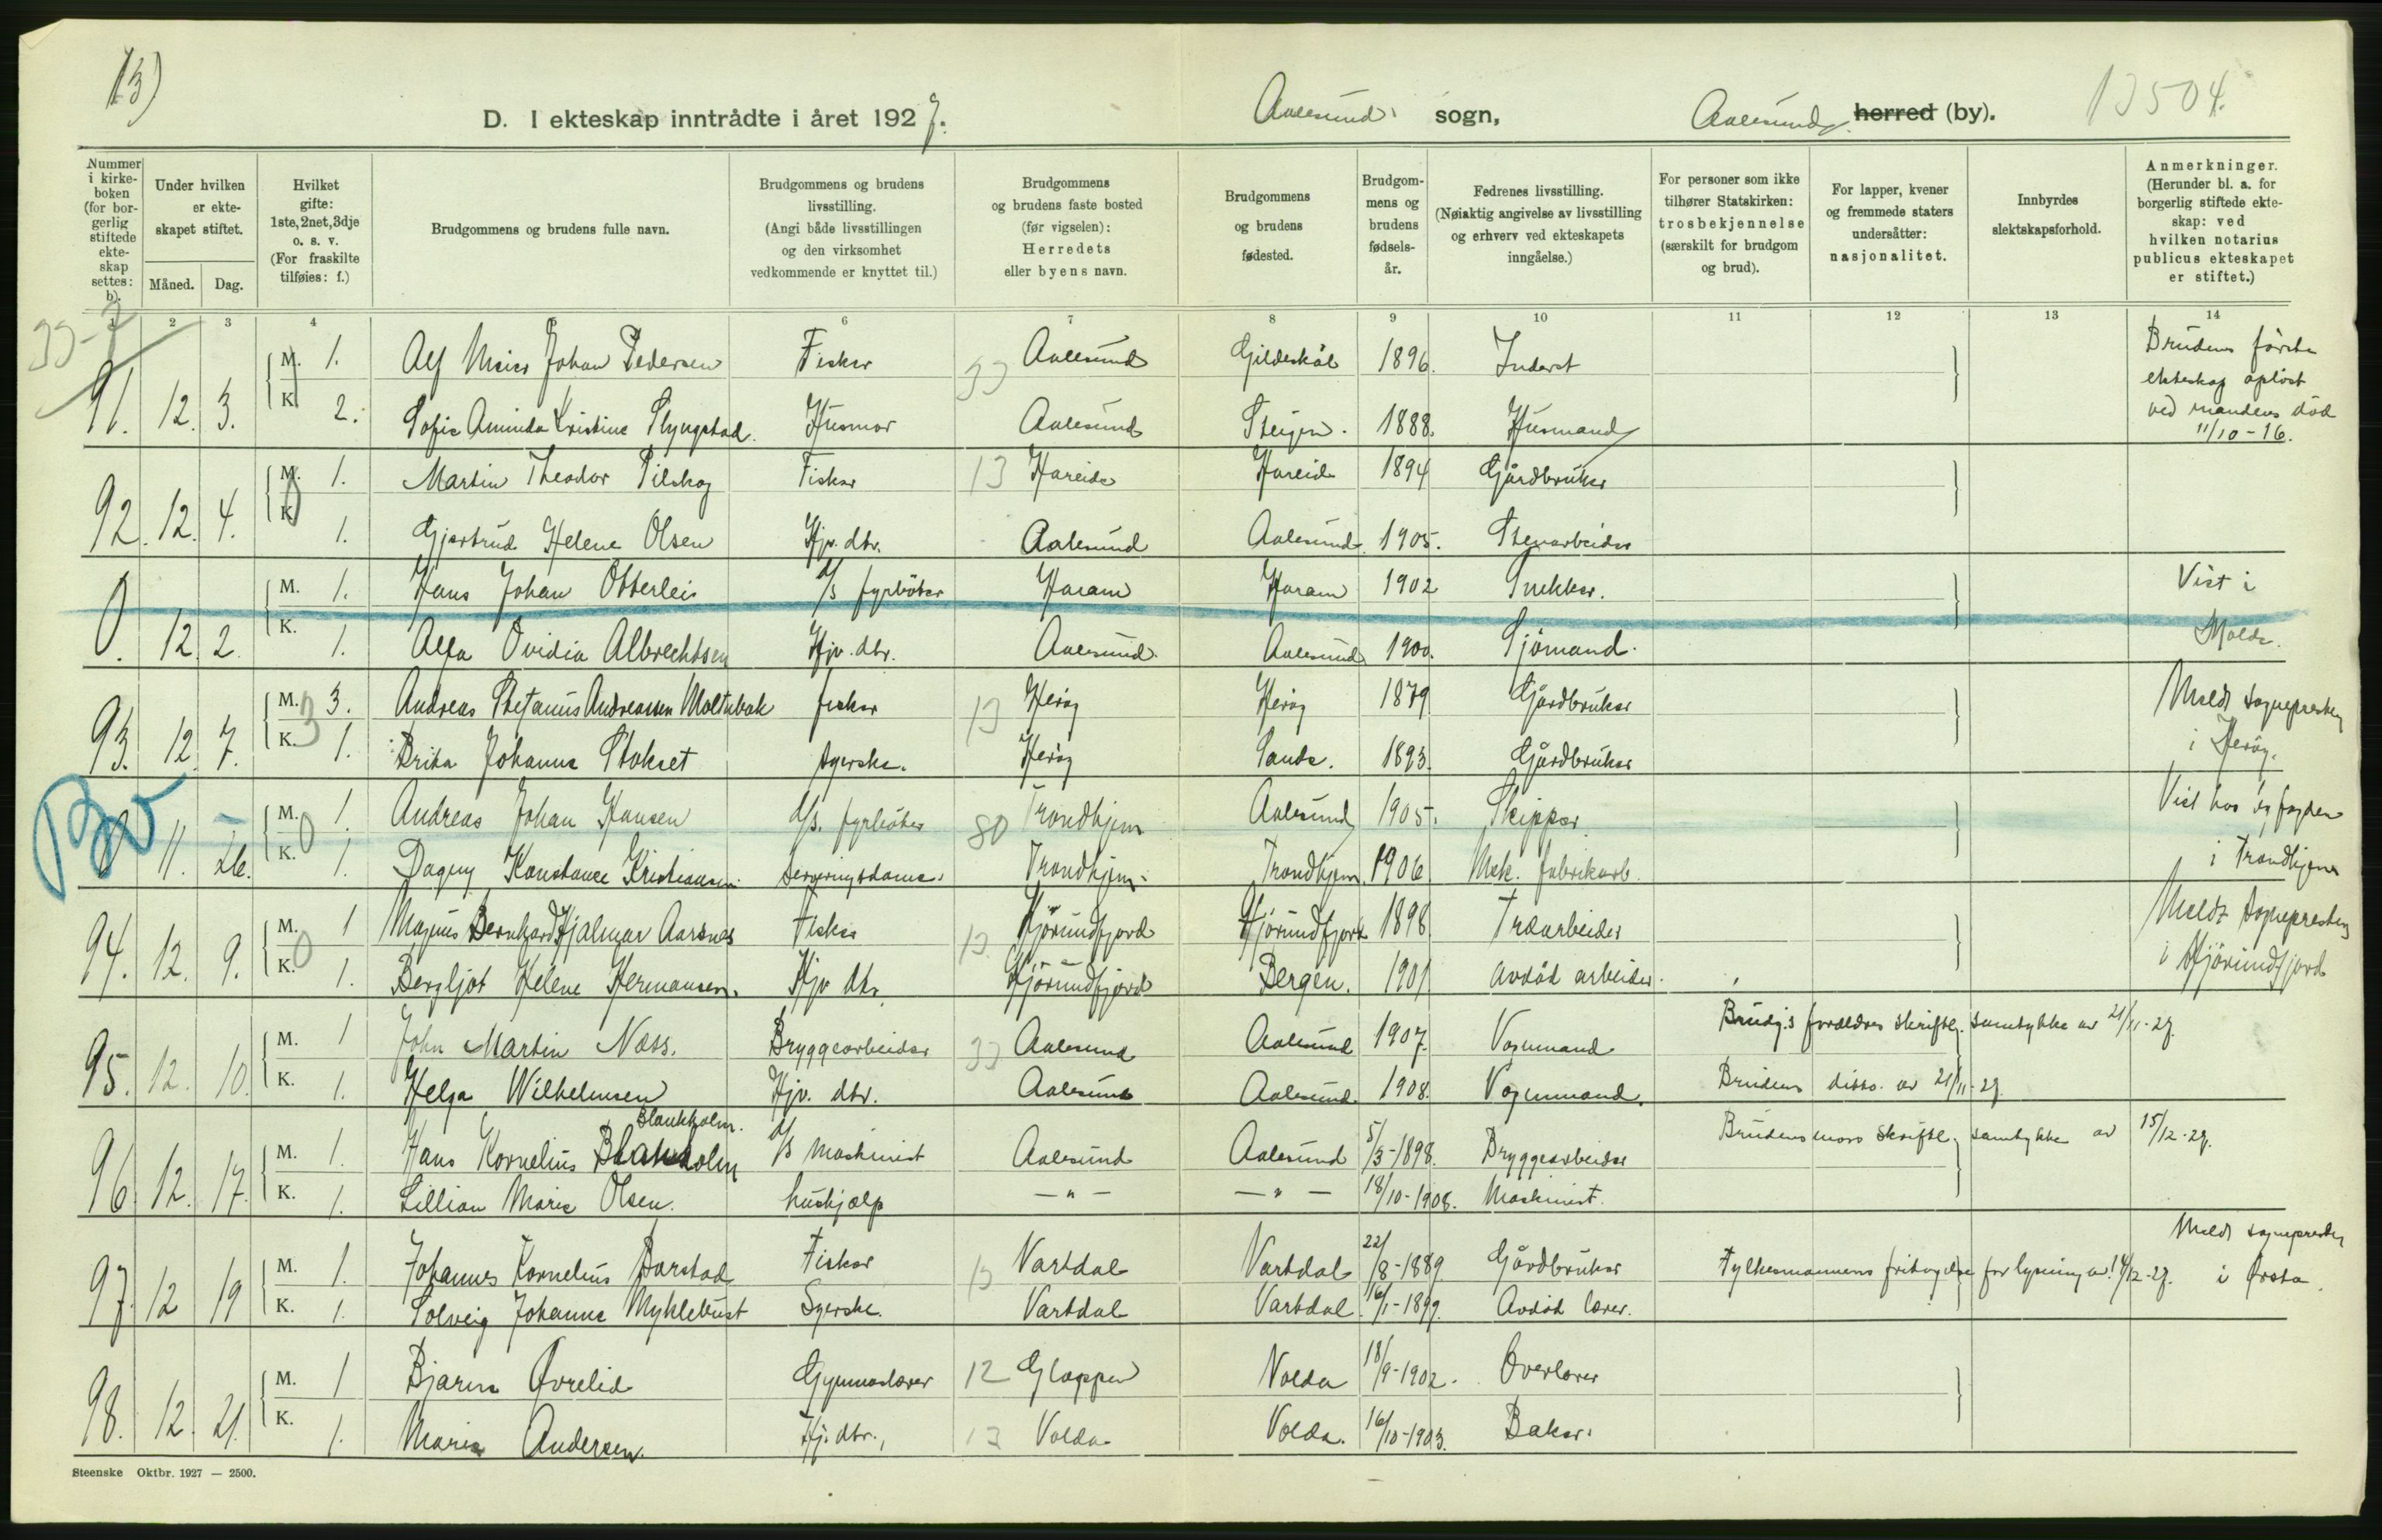 13)
D. I ekteskap inntrådte i året 1927.
Aalesund sogn,
Aalesund herred (by).
13504.
Nummer i kirkeboken (for borgerlig stiftede ekteskap settes: b).
Under hvilken er ekteskapet stiftet.
Måned.
Dag.
Hvilket gifte: 1ste, 2net, 3dje o. s. v. (For fraskilte tilføies: f.)
Brudgommens og brudens fulle navn.
Brudgommens og brudens livsstilling. (Angi både livsstillingen og den virksomhet vedkommende er knyttet til.)
Brudgommens og brudens faste bosted (før vigselen): Herredets eller byens navn.
Brudgommens og brudens fødested.
Brudgommens og brudens fødselsår.
Fedrenes livsstilling. (Nøiaktig angivelse av livsstilling og erhverv ved ekteskapets inngåelse.)
For personer som ikke tilhører Statskirken: trosbekjennelse (særskilt for brudgom og brud).
For lapper, kvener og fremmede staters undersåtter: nasjonalitet.
Innbyrdes slektskapsforhold.
Anmerkninger. (Herunder bl. a. for borgerlig stiftede ekteskap: ved hvilken notarius publicus ekteskapet er stiftet.)
1 2 3 4 5 6 7 8 9 10 11 12 13 14
91. 12. 3. M. 1. Alf Meier Johan Pedersen Fisker 33 Aalesund Gildeskål 1896. Inderst
K. 2. Sofie Aminda Kristine Slyngstad. Husmor Aalesund Steigen. 1888. Husmand
Brudens første ekteskap opløst ved mandens död 11/10-16.
92. 12. 4. M. 1. Martin Theodor Pilskog Fisker 13 Hareide Hareid 1894 Gårdbruker
K. 1. Gjertrud Helene Olsen Hjv. dtr. Aalesund Aalesund 1905. Stenarbeider
0. 12. 2. M. 1. Hans Johan Otterlei d/s fyrböter Haram Haram 1902 Snekker. Vist i
K. 1. Alfa Ovidia Albrechtsen Hjv. dtr. Aalesund Aalesund 1900. Sjömand. Molde.
93. 12. 7. M. 3. Andreas Stefanus Andreassen Moltubak fisker 13 Heröy Heröy 1879 Gårdbruker Meldt sognepresten
K. 1. Brita Johanna Stokset syerske. Heröy Sande. 1893. Gårdbruker i Heröy.
0 11. 26. M. 1. Andreas Johan Hansen d/s. fyrböter 80 Trondhjem Aalesund 1905. Skipper Vist hos byfogden
K. 1. Dagny Konstance Kristiansen. Serveringsdame. Trondhjem. Trondhjem. 1906 Mek. fabrikarb. i Trondhjem
94. 12. 9. M. 1 Magnus Bernhard Hjalmar Aarsnes Fisker 13. Hjörundfjord Hjörundfjord 1898 Træarbeider Meldt sognepresten
K. 1. Bergljot Helene Hermansen. Hjv. dtr. Hjörundfjord Bergen. 1901 Avdöd arbeider. i Hjörundfjord
95. 12. 10. M. 1 John Martin Næss. Bryggearbeider 33 Aalesund Aalesund 1907. Vognmand Brudg.s forældres skriftl. samtykke av 21/11-27.
K. 1. Helga Wilhelmsen Hjv. dtr. Aalesund Aalesund. 1908. Vognmand. Brudens ditto. av 21/11-27.
Blankholm.
96. 12. 17. M. 1. Hans Kornelius Blankholm d/s maskinist Aalesund Aalesund 5/3-1898. Bryggearbeider Brudens mors skriftl. samtykke av 15/12-27.
K. 1. Lillian Marie Olsen. hushjælp — " — — " — 18/10-1908. Maskinist.
97. 12 19 M. 1. Johannes Kornelius Barstad Fisker 13 Vartdal Vartdal 22/8-1889 Gårdbruker Fylkesmannens fritagelse for lysning av 14/12-27. Meldt sognepresten
K. 1. Solveig Johanna Myklebust Syerske. Vartdal Vartdal 16/1-1899. Avdöd lærer. i Ørsta.
98. 12. 21. M. 1 Bjarne Øvrelid Gymnaslærer 12 Gloppen Volda 18/9-1902. Overlærer
K. 1. Marie Andersen. Hj. dtr. 13 Volda Volda. 16/10-1903. Baker.
Steenske Oktbr. 1927 — 2500.